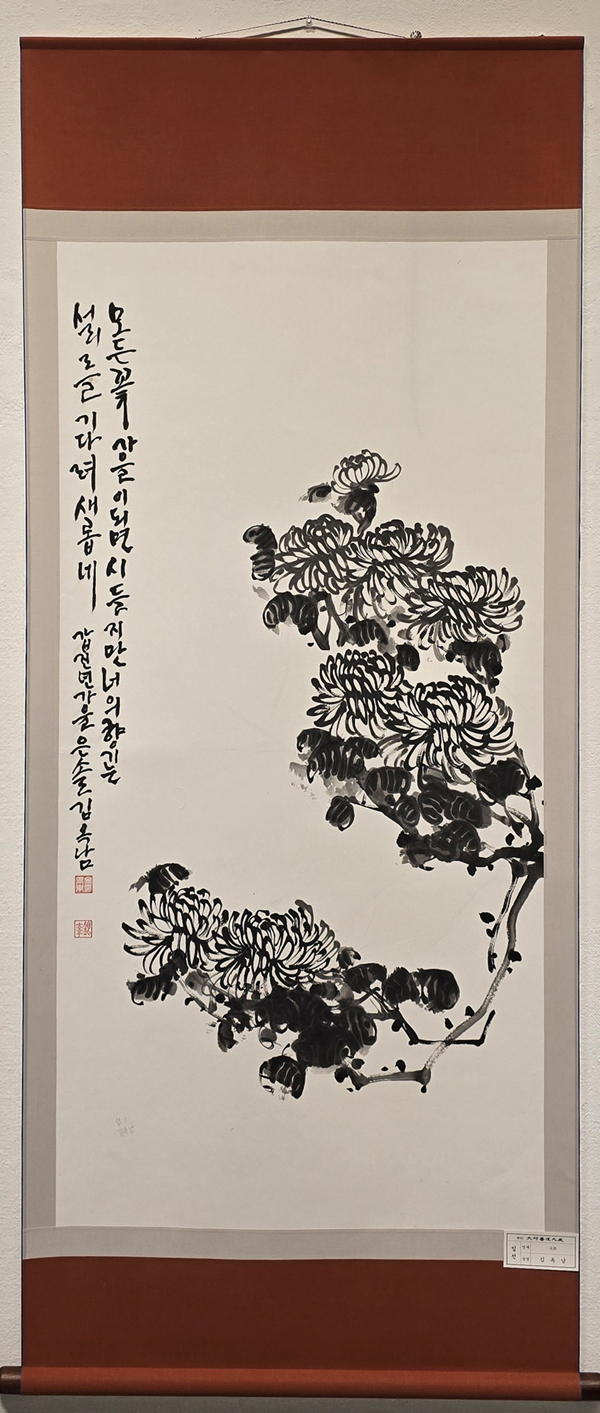 모든 꽃 가을이되면 시들지만 너의 향기는
서리를 기다려 새롭네 갑진년 가을 은솔 김옥남
입선
김옥남